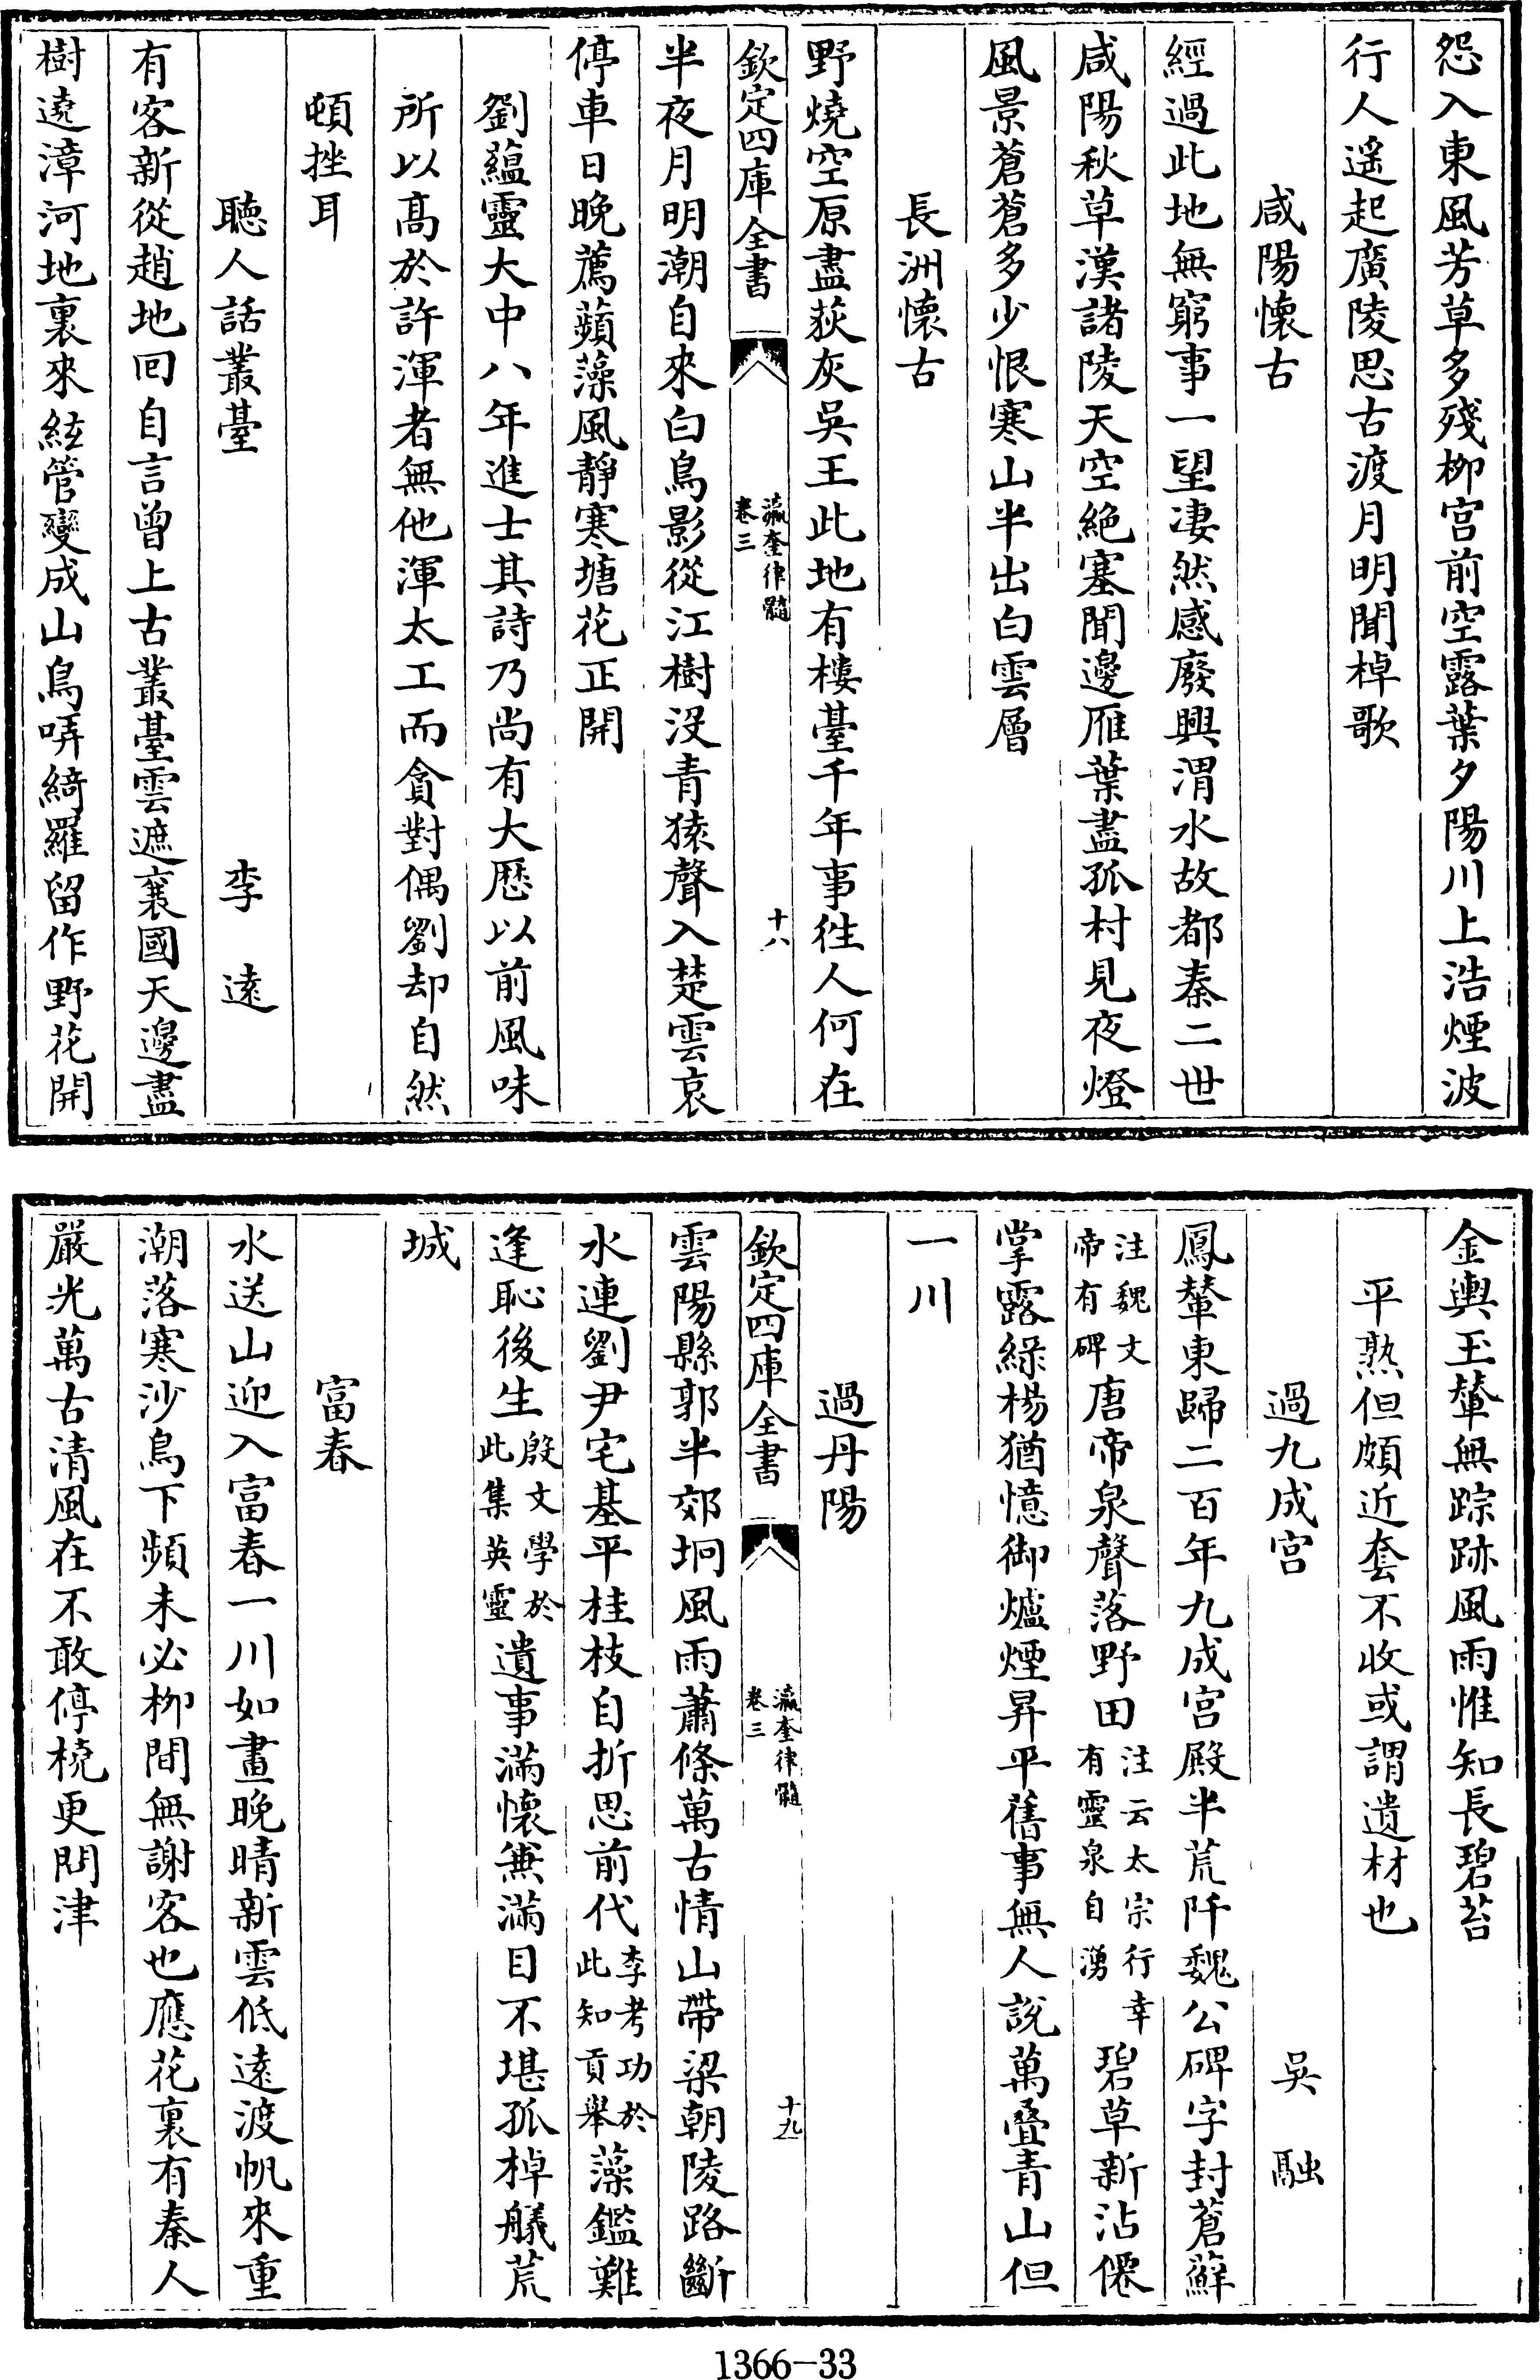 怨入東風芳草多殘柳宫前空露葉夕陽川上浩煙波
行人遥起廣陵思古渡月明聞棹歌
咸陽懷古
經過此地無窮事一望凄然感廢興渭水故都秦二世
咸陽秋草漢諸陵天空絶塞聞邊雁葉盡孤村見夜燈
風景蒼蒼多少恨寒山半出白雲層
長洲懷古
野燒空原盡荻灰吳王此地有樓臺千年事往人何在
欽定四庫全書
瀛奎律髓
卷三
十八
半夜月明潮自來白鳥影從江樹没青猿聲入楚雲哀
停車日晚薦蘋藻風靜寒塘花正開
劉藴靈大中八年進士其詩乃尚有大厯以前風味
所以髙於許渾者無他渾太工而貪對偶劉却自然
頓挫耳
聽人話叢臺　李遠
有客新從趙地回自言曾上古叢臺雲遮襄國天邊盡
樹遶漳河地裏來絃管變成山鳥哢綺羅留作野花開
金輿玉輦無踪跡風雨惟知長碧苔
平熟但頗近套不收或謂遺材也
過九成宫　吳融
鳳輦東歸二百年九成宫殿半荒阡魏公碑字封蒼蘚
注魏文帝有碑唐帝泉聲落野田注云太宗行幸有靈泉自湧碧草新沾僊
掌露綠楊猶憶御爐煙昇平舊事無人說萬疊青山但
一川
過丹陽
欽定四庫全書
瀛奎律髓
卷三
十九
雲陽縣郭半郊坰風雨蕭條萬古情山帶梁朝陵路斷
水連劉尹宅基平桂枝自折思前代李考功於此知貢舉藻鑑難
逢恥後生殷文學於此集英靈遺事滿懷兼滿目不堪孤棹艤荒
城
富春
水送山迎入富春一川如畫晚晴新雲低遠渡帆來重
潮落寒沙鳥下頻未必柳間無謝客也應花裏有秦人
嚴光萬古清風在不敢停橈更問津
1366-33